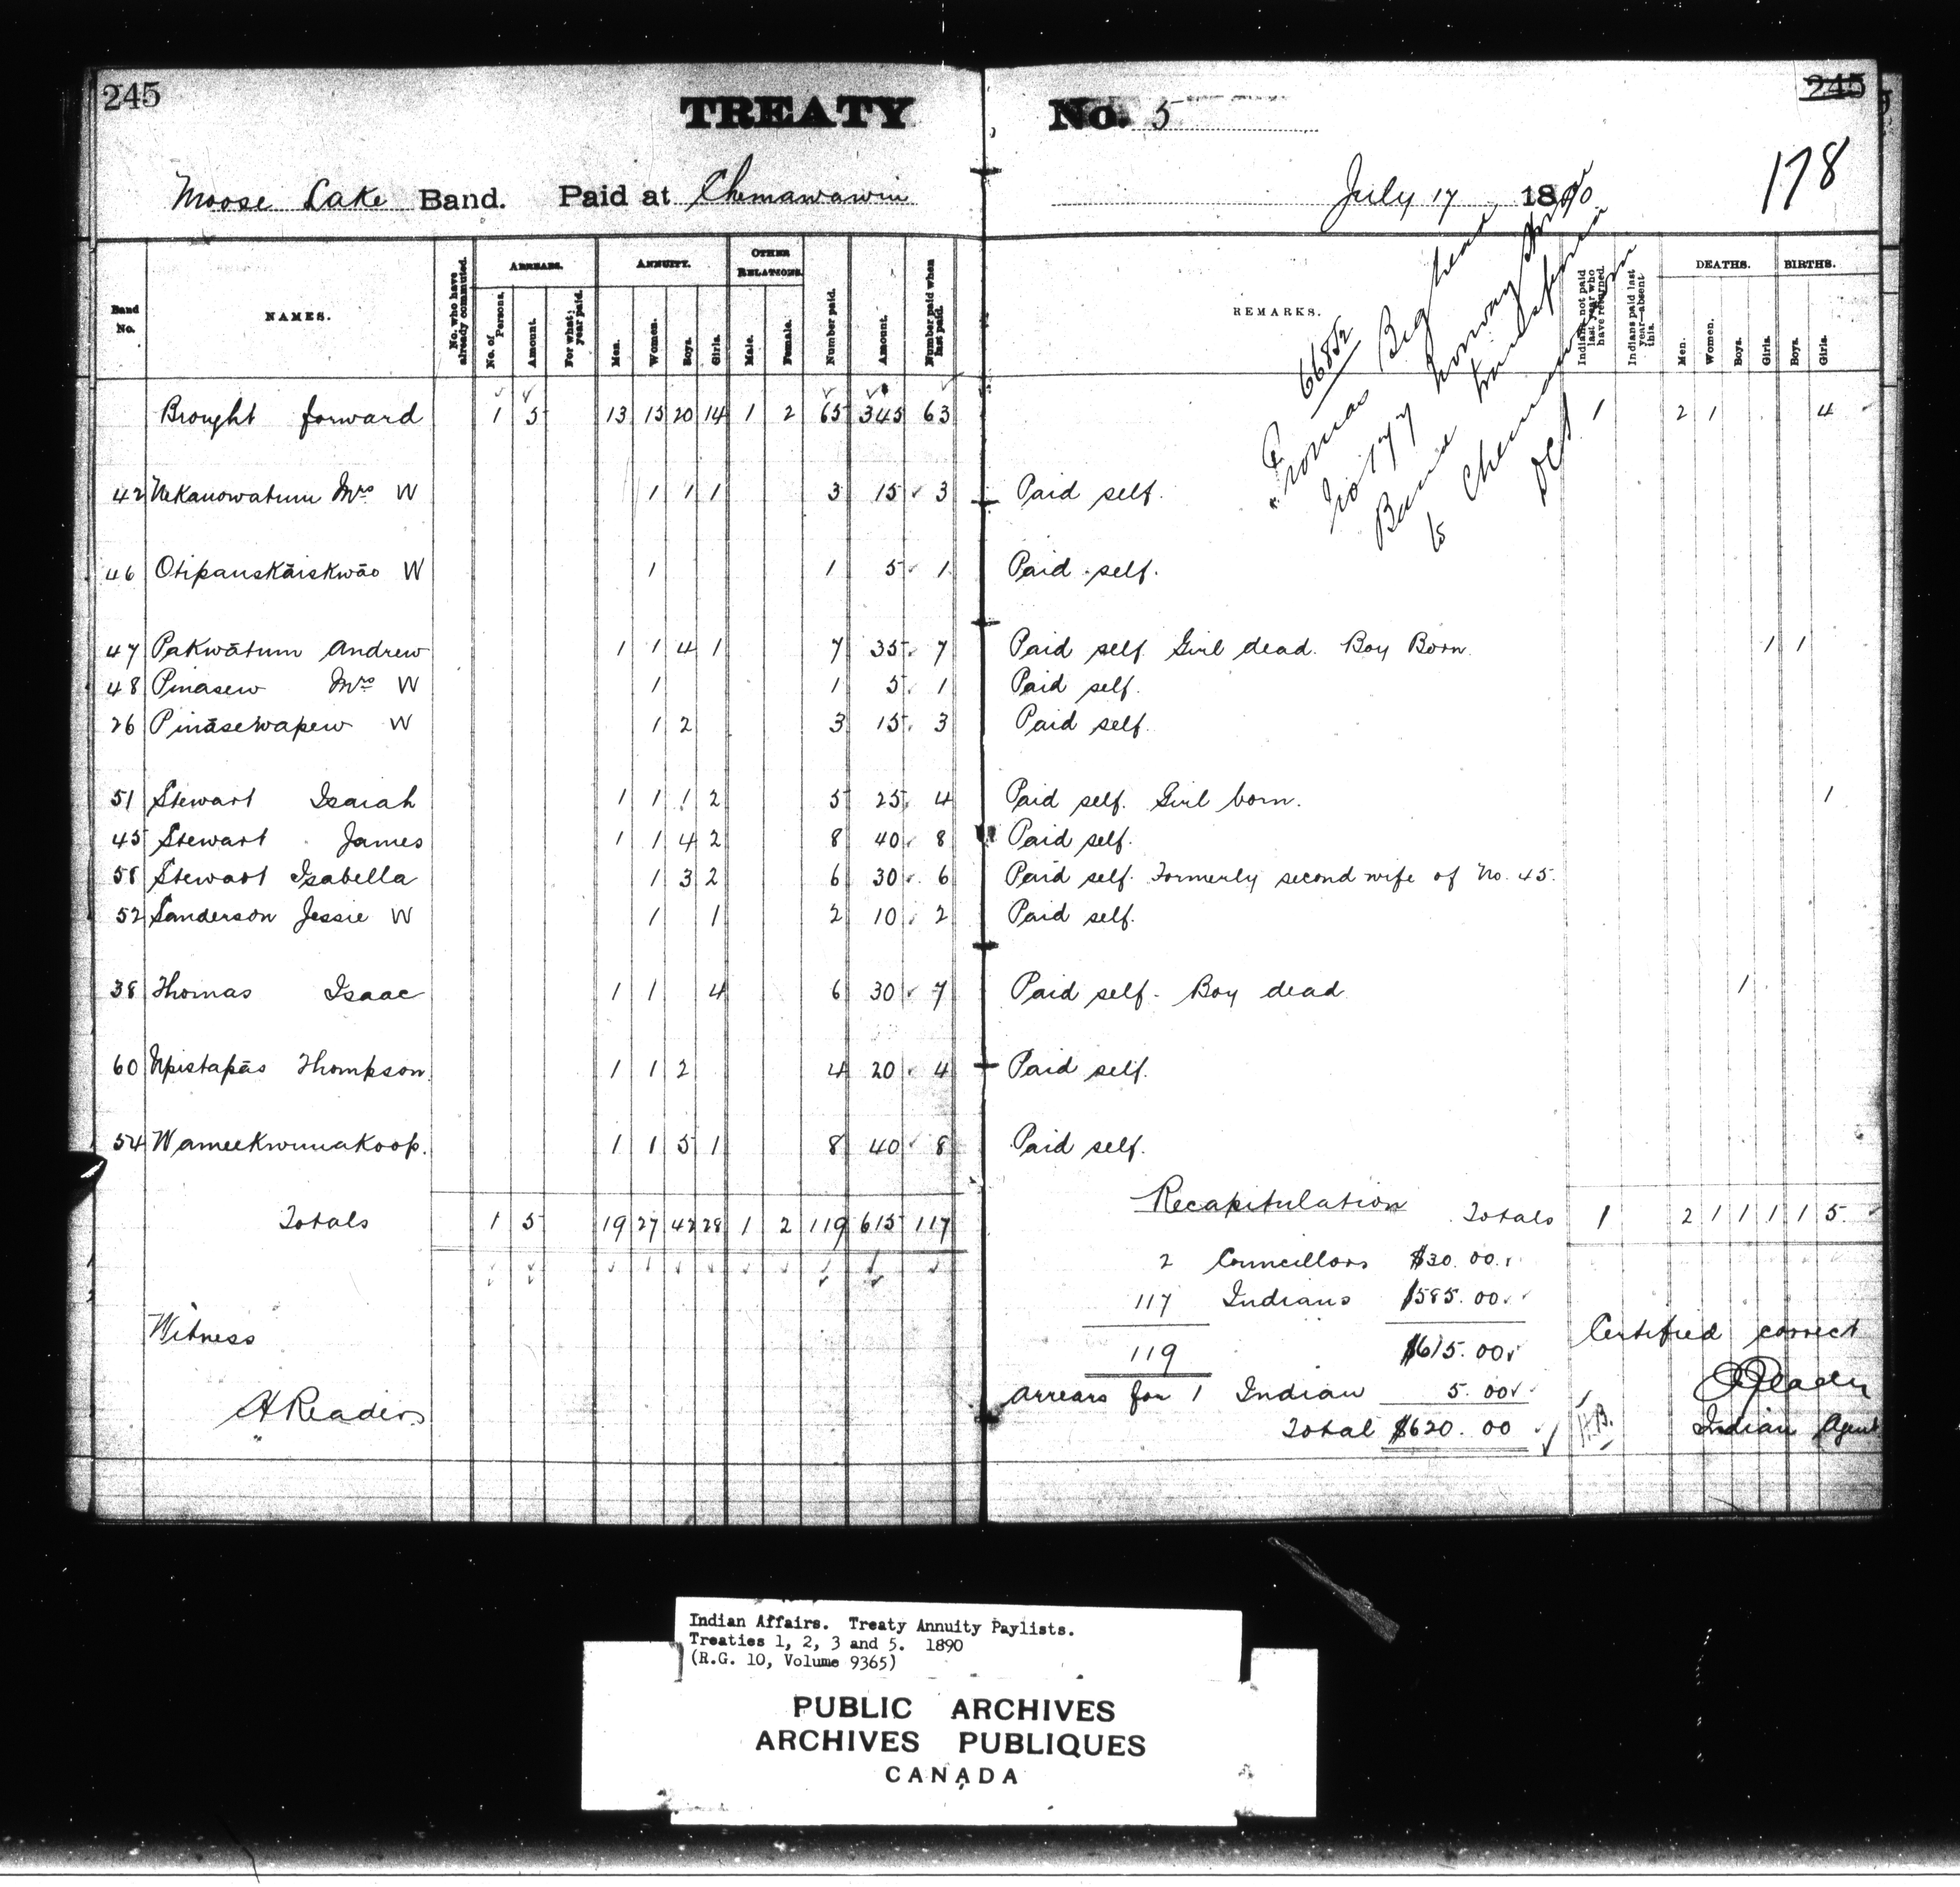 245
TREATY No. 5
245
178
Moose Lake Band. Paid at Chemawawin July 17 1890
Band No. NAMES. No. who have already commuted. ARREARS. No. of Persons. Amount. For what year paid. ANNUITY. Men. Women. Boys. Girls. OTHER RELATIONS. Male. Female. Number paid. Amount. Number paid when last paid. REMARKS. Indians not paid last year who have returned. Indians paid last year—absent this. DEATHS. Men. Women. Boys. Girls. BIRTHS. Boys. Girls.
66852
Thomas Big
Norway
Band transferred
to Chemawawin
Brought forward 1 5 13 15 20 14 1 2 65 345 63 1 2 1 4
42 Nekanowatum Mrs W 1 1 1 3 15 3 Paid self.
46 Otipanskāiskwāo W 1 1 5 1 Paid self.
47 Pakwātum Andrew 1 1 4 1 7 35 7 Paid self. Girl dead. Boy Born. 1 1
48 Pinasew Mrs W 1 1 5 1 Paid self.
26 Pināsewapew W 1 2 3 15 3 Paid self.
51 Stewart Isaiah 1 1 1 2 5 25 4 Paid self. Girl born. 1
45 Stewart James 1 1 4 2 8 40 8 Paid self.
58 Stewart Isabella 1 3 2 6 30 6 Paid self. Formerly second wife of No. 45.
52 Sanderson Jessie W 1 1 2 10 2 Paid self.
38 Thomas Isaac 1 1 4 6 30 7 Paid self. Boy dead 1
60 Upistapās Thompson. 1 1 2 4 20 4 Paid self.
54 Wameekwunakoop. 1 1 5 1 8 40 8 Paid self.
Totals 1 5 19 27 42 28 1 2 119 615 117 Recapitulation Totals 1 2 1 1 1 1 5
2 Councillors $30.00
117 Indians $585.00
Witness Certified correct
119 $615.00
Arrears for 1 Indian 5.00
A Reader
Total $620.00 H.B. Indian Agent
Indian Affairs. Treaty Annuity Paylists.
Treaties 1, 2, 3 and 5. 1890
(R.G. 10, Volume 9365)
PUBLIC ARCHIVES
ARCHIVES PUBLIQUES
CANADA